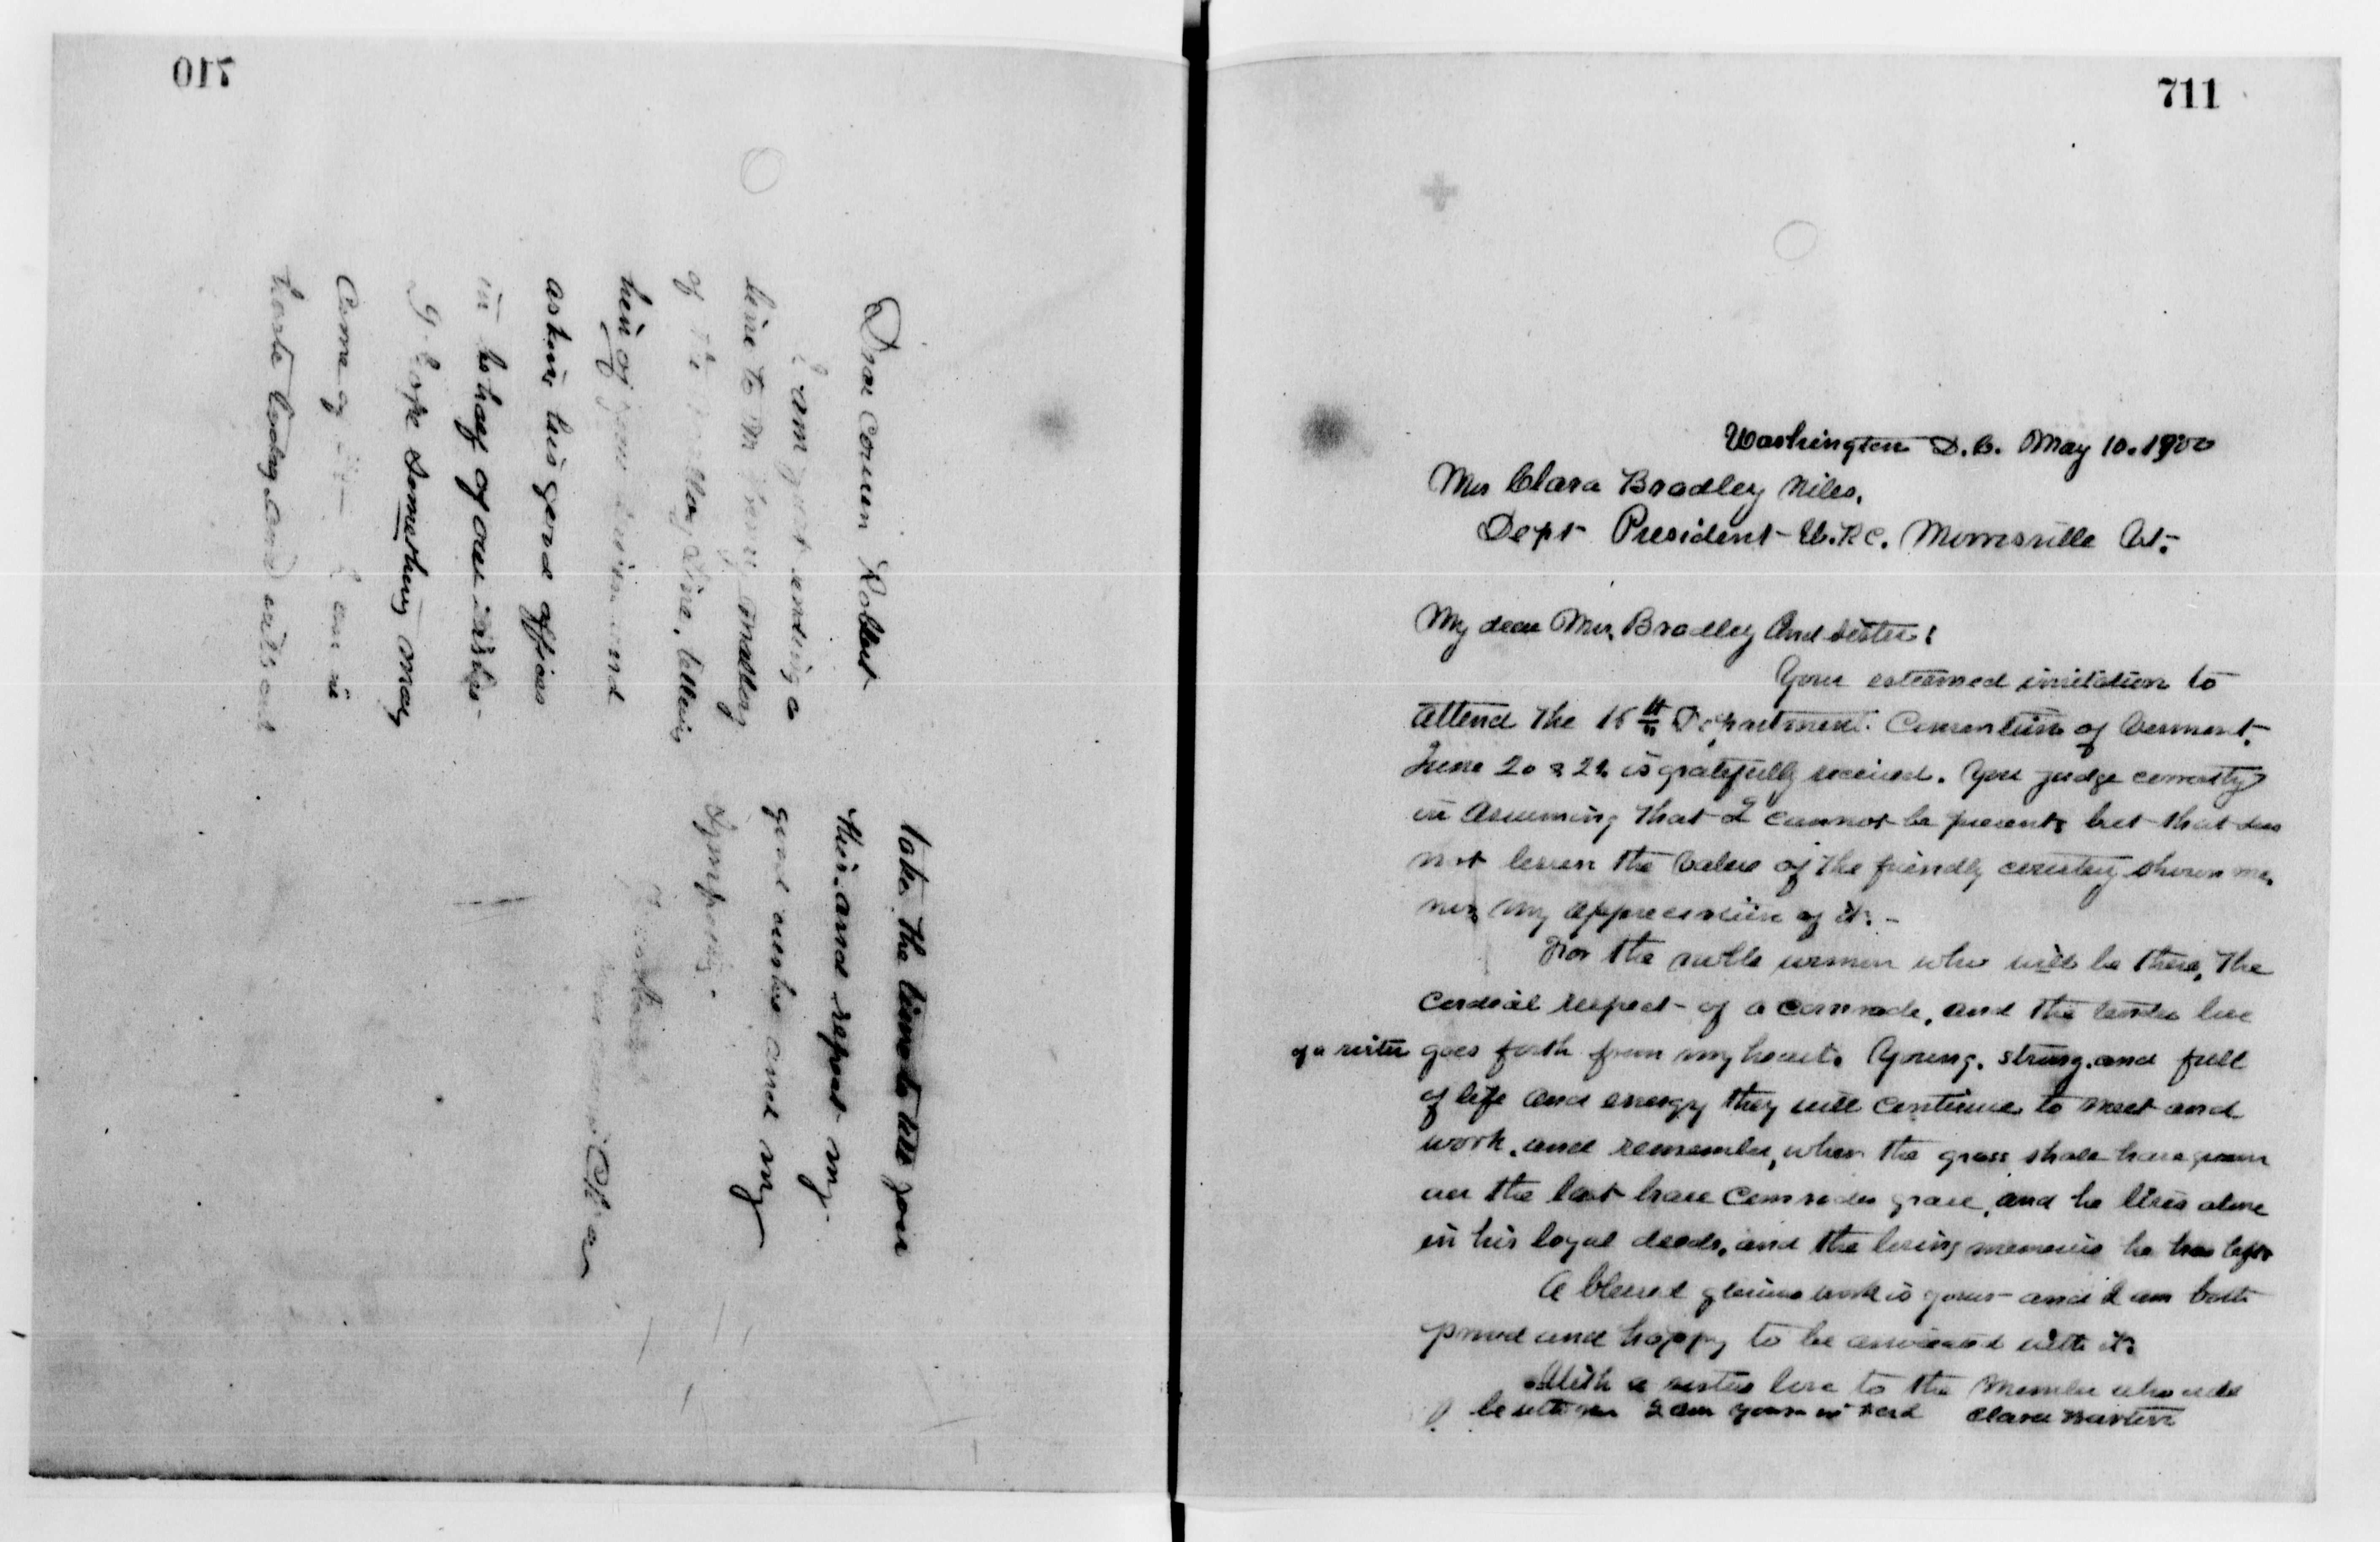 710
Dear Cousin Robert
I am just sending a
line to Mr
of the Line, telling
him of your and
asking his good offices
in behalf of our
I hope Something may
Come of it — I am in
haste today and
take the time to tell you
this and repeat my
good wishes and my
Sympathy.
Clara
711
Washington D.C. May 10. 1900
Mrs Clara Bradley Niles,
Dept President W.R.C. Morrisville Vt.
My dear Mrs. Bradley And sister:
Your esteemed invitation to
attend the 16th Department Convention of Vermont.
June 20 & 21 is gratefully received. You judge correctly
in assuming that I cannot be present, but that does
not lessen the value of the friendly courtesy shown me,
nor my appreciation of it. -
For the noble women who will be there, the
cordial respect of a comrade, and the tender love
of a sister goes forth from my heart. Young, strong, and full
of life and energy they will continue to meet and
work, and remember, when the grass shall have grown
on the last brave comrades grave, and he lives alone
in his loyal deeds, and the loving memories he has left.
A blessed glorious work is yours - and I am both
proud and happy to be associated with it.
With a sisters love to the Members who will
be with you I am yours Clara Barton